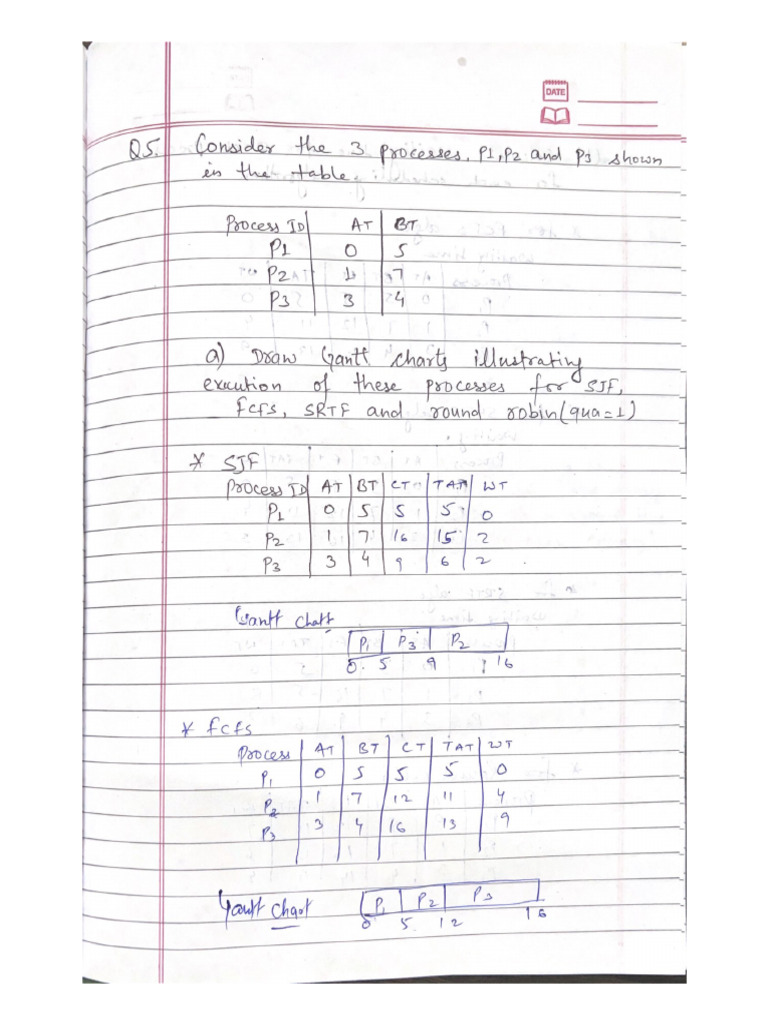 DATE
Q5. Consider the 3 processes, P1, P2 and P3 shown
in the table.
Process ID AT BT
P1 0 5
P2 1 7
P3 3 4
a) Draw Gantt charts illustrating
execution of these processes for SJF,
fcfs, SRTF and round robin (qua=1)
* SJF
Process ID AT BT CT TAT WT
P1 0 5 5 5 0
P2 1 7 16 15 2
P3 3 4 9 6 2
Gantt chart
P1 P3 P2
0 5 9 16
* fcfs
Process AT BT CT TAT WT
P1 0 5 5 5 0
P2 1 7 12 11 4
P3 3 4 16 13 9
Gantt chart
P1 P2 P3
0 5 12 16